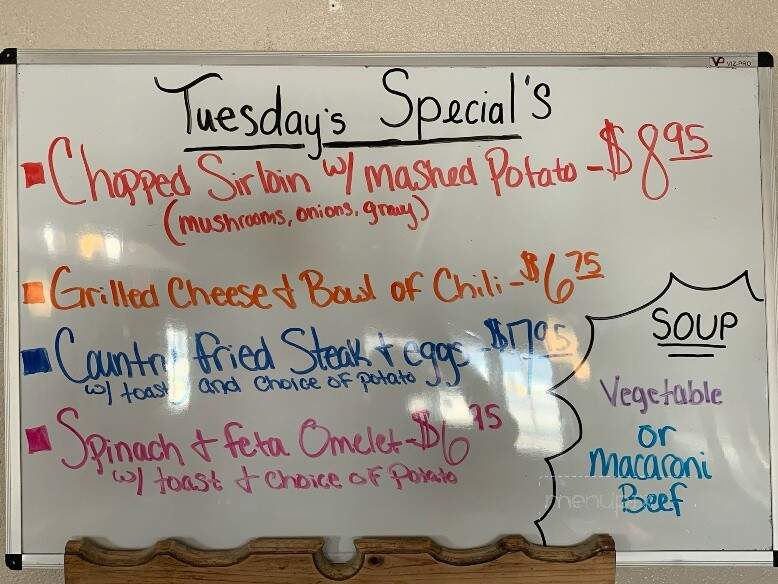 VP VIZ-PRO
Tuesday's Special's
Chopped Sirloin w/ mashed Potato - $8.95
(mushrooms, onions, gravy)
Grilled Cheese & Bowl of Chili - $6.75
Country fried Steak & eggs - $7.95
w/ toast and choice of potato
Spinach & feta Omelet - $6.95
w/ toast & choice of Potato
SOUP
Vegetable
or
Macaroni
Beef